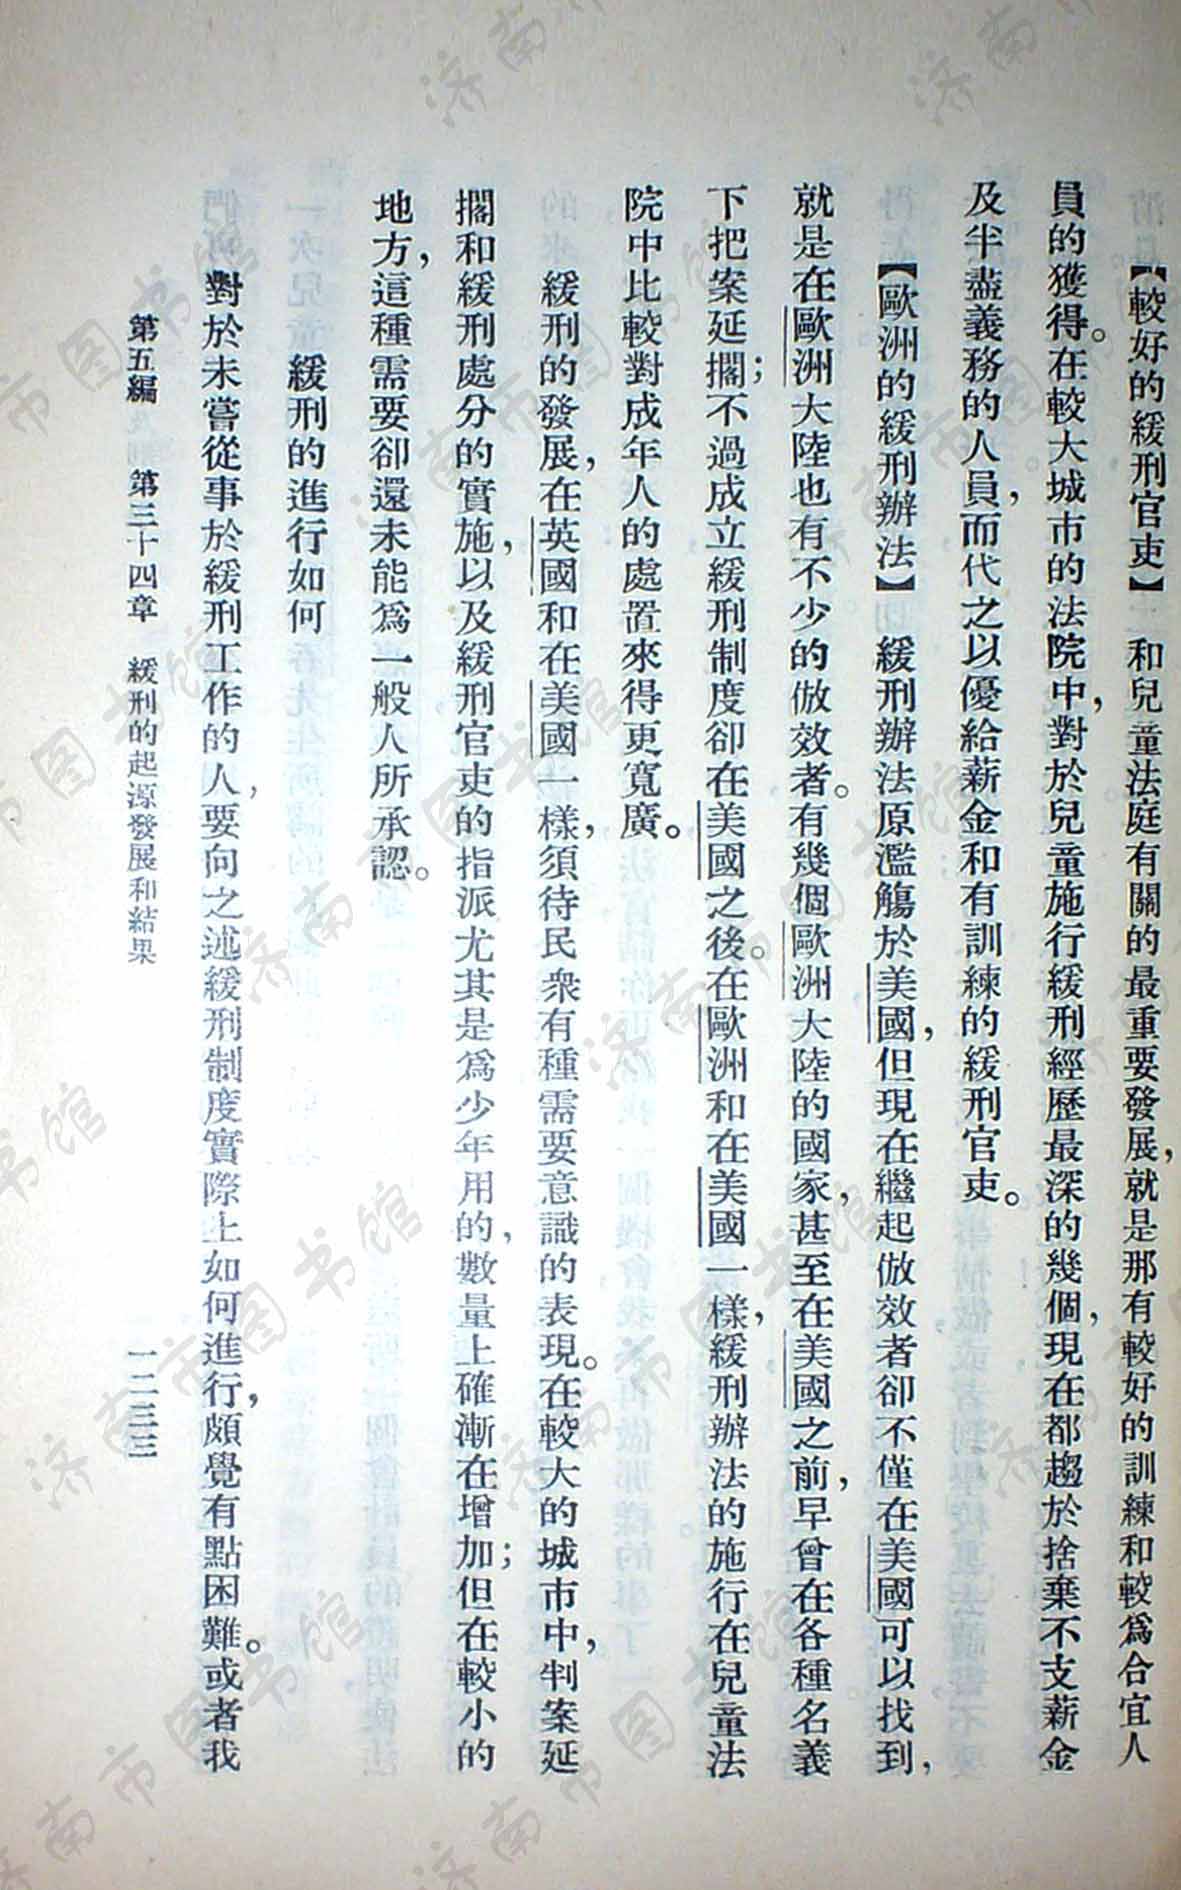 【較好的緩刑官吏】　和兒童法庭有關的最重要發展，就是那有較好的訓練和較爲合宜人
員的獲得。在較大城市的法院中，對於兒童施行緩刑經歷最深的幾個，現在都趨於捨棄不支薪金
及半盡義務的人員，而代之以優給薪金和有訓練的緩刑官吏。
【歐洲的緩刑辦法】　緩刑辦法原濫觴於美國，但現在繼起倣效者卻不僅在美國可以找到，
就是在歐洲大陸也有不少的倣效者。有幾個歐洲大陸的國家，甚至在美國之前，早曾在各種名義
下把案延擱；不過成立緩刑制度卻在美國之後。在歐洲和在美國一樣，緩刑辦法的施行在兒童法
院中比較對成年人的處置來得更寬廣。
緩刑的發展，在英國和在美國一樣，須待民衆有種需要意識的表現。在較大的城市中，判案延
擱和緩刑處分的實施，以及緩刑官吏的指派尤其是爲少年用的，數量上確漸在增加；但在較小的
地方，這種需要卻還未能爲一般人所承認。
緩刑的進行如何
對於未嘗從事於緩刑工作的人，要向之述緩刑制度實際上如何進行，頗覺有點困難。或者我
第五編　第三十四章　緩刑的起源發展和結果　一二三三
济南市图书馆